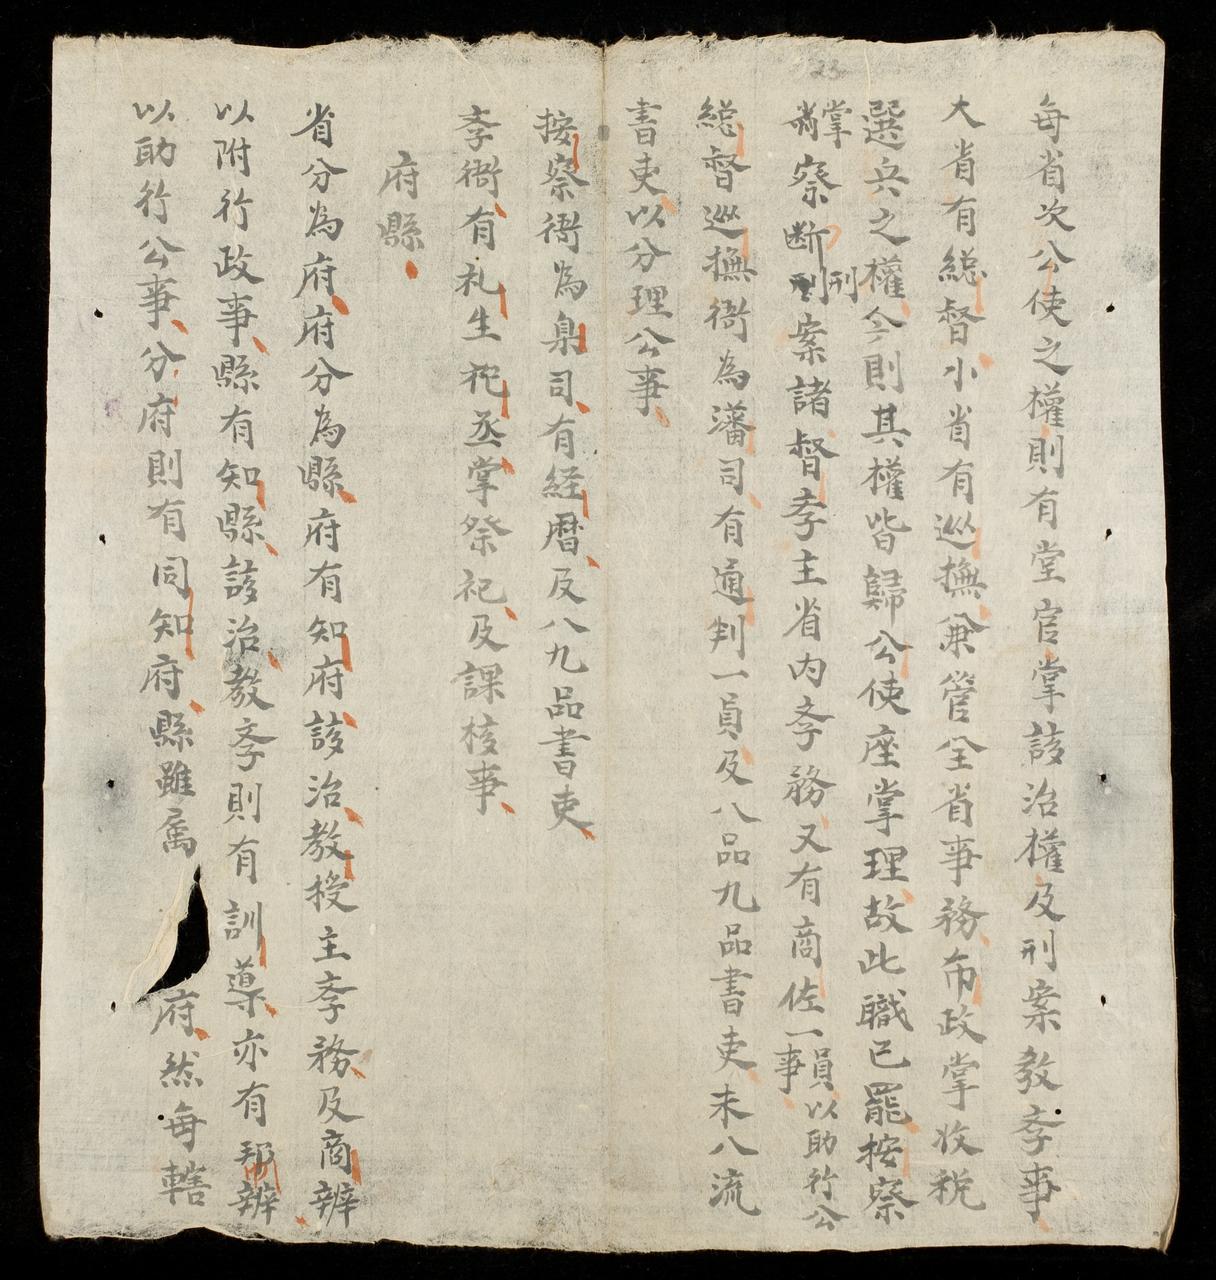 每省次公使之權則有堂官掌該治權及刑案教斈事
大省有総督小省有巡撫兼管全省事務布政掌收税
選兵之權今則其權皆歸公使座掌理故此職已罷按察
掌察断刑案諸督斈主省内斈務又有商佐一員以助行公事
総督巡撫衙為藩司有通判一員及八品九品書吏未八流
書吏以分理公事
按察衙為臬司有経暦及八九品書吏
斈衙有礼生祀丞掌祭祀及課核事
府縣
省分為府府分為縣府有知府該治教授主斈務及商辨
以附行政事縣有知縣該治教斈則有訓導亦有帮辨
以助行公事分府則有同知府縣雖属府然每轄